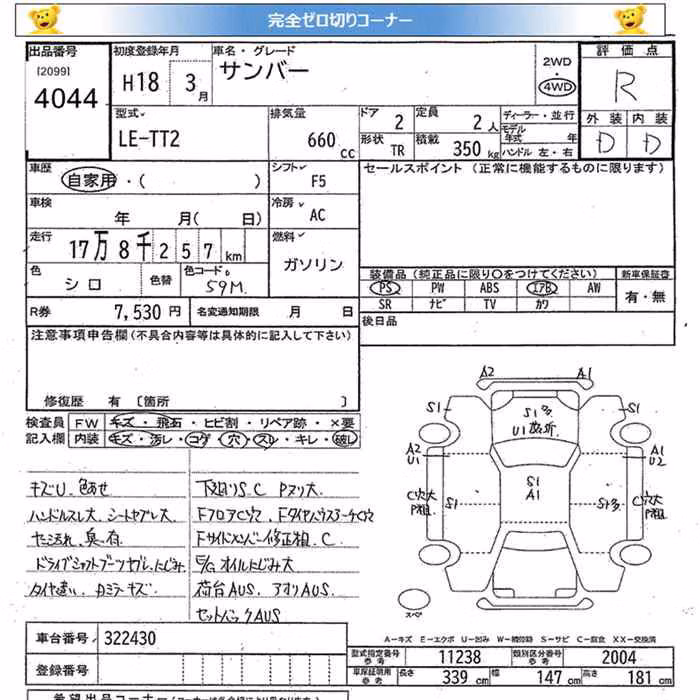 完全ゼロ切りコーナー
出品番号
[2099]
4044
初度登録年月
H18 3月
車名・グレード
サンバー
2WD
・
4WD
評価点
R
外装 内装
D D
型式
LE-TT2
排気量
660 cc
ドア
2
形状
TR
定員
2人
積載
350 kg
ディーラー・並行
モデル年式 年
ハンドル 左・右
車歴
自家用・( )
シフト
F5
セールスポイント (正常に機能するものに限ります)
車検
年 月( 日)
冷房
AC
走行
17万8千257km
燃料
ガソリン
色
シロ
色替
色コード
59M
装備品(純正品に限り○をつけてください)
PS PW ABS エアB AW
SR ナビ TV カワ
新車保証書
有・無
R券 7,530円
名変通知期限 月 日
後日品
注意事項申告欄(不具合内容等は具体的に記入して下さい)
修復歴 有 [箇所 ]
検査員記入欄
FW キズ・飛石・ヒビ割・リペア跡・×要
内装 キズ・汚レ・コゲ・穴・スレ・キレ・破レ
キズU. 色あせ
ハンドルスレ大. シートヤブレ大.
ヤニ汚れ. 臭い有
ドライブシャフトブーツヤブレ.にじみ
タイヤ違い. Dミラーキズ
下廻りS.C Pヌリ大.
FフロアC穴. FタイヤハウスコーナーC穴
Fサイドメンバー修正粗.C.
E/Gオイルにじみ大
荷台AUS. アオリAUS.
セットバックAUS
A2
A1
S1
S1多
U1数ヶ所
S1
A2
U1
A1
U2
C穴大
P粗
S1
S1
A1
S1多
C穴大
P粗
スペア
A-キズ E-エクボ U-凹み W-補修跡 S-サビ C-腐食 XX-交換済
車台番号 322430
登録番号
型式指定番号
参考
11238
類別区分番号
参考
2004
車庫証明用
参考
長さ 339 cm
幅 147 cm
高さ 181 cm
希望出品コーナー